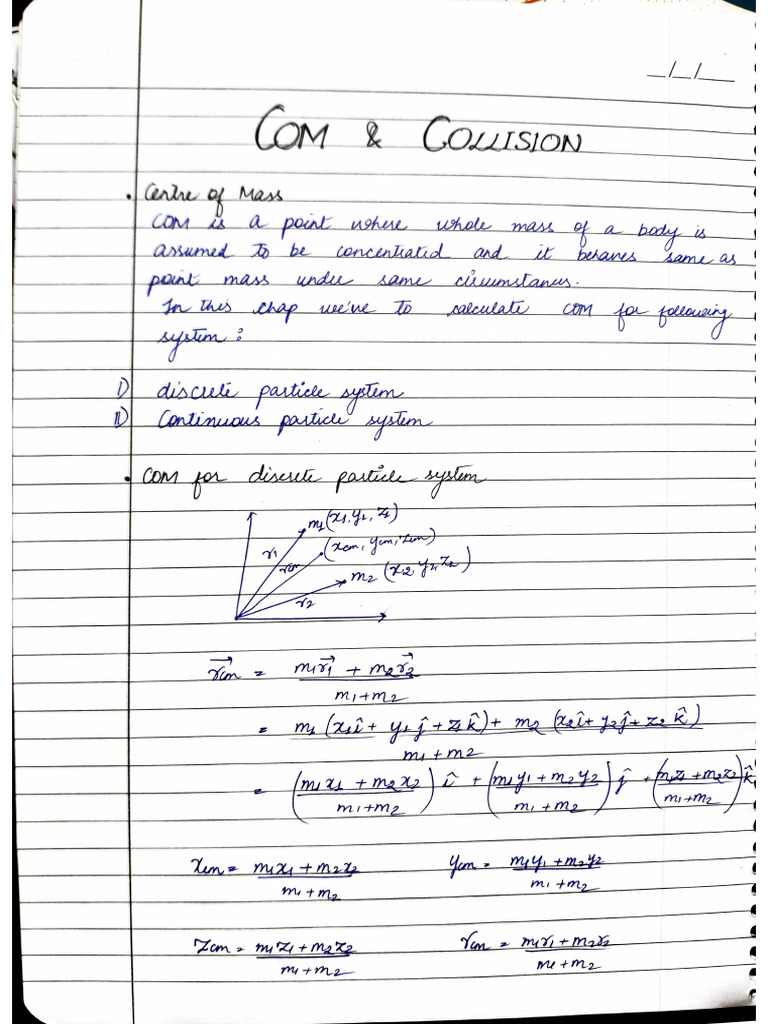 _/_/__
COM & COLLISION
• Centre of Mass
COM is a point where whole mass of a body is
assumed to be concentrated and it behaves same as
point mass under same circumstances.
In this chap we've to calculate COM for following
system :
I) discrete particle system
II) Continuous particle system
• COM for discrete particle system
m1 (x1, y1, z1)
(xcm, ycm, zcm)
m2 (x2, y2, z2)
r1
rcm
r2
r⃗cm = (m1r⃗1 + m2r⃗2)/(m1+m2)
= (m1 (x1î + y1ĵ + z1k̂) + m2 (x2î + y2ĵ + z2k̂))/(m1+m2)
= ((m1x1 + m2x2)/(m1+m2)) î + ((m1y1 + m2y2)/(m1+m2)) ĵ + ((m1z1 + m2z2)/(m1+m2)) k̂
xcm = (m1x1 + m2x2)/(m1+m2) ycm = (m1y1 + m2y2)/(m1+m2)
zcm = (m1z1 + m2z2)/(m1+m2) rcm = (m1r1 + m2r2)/(m1+m2)